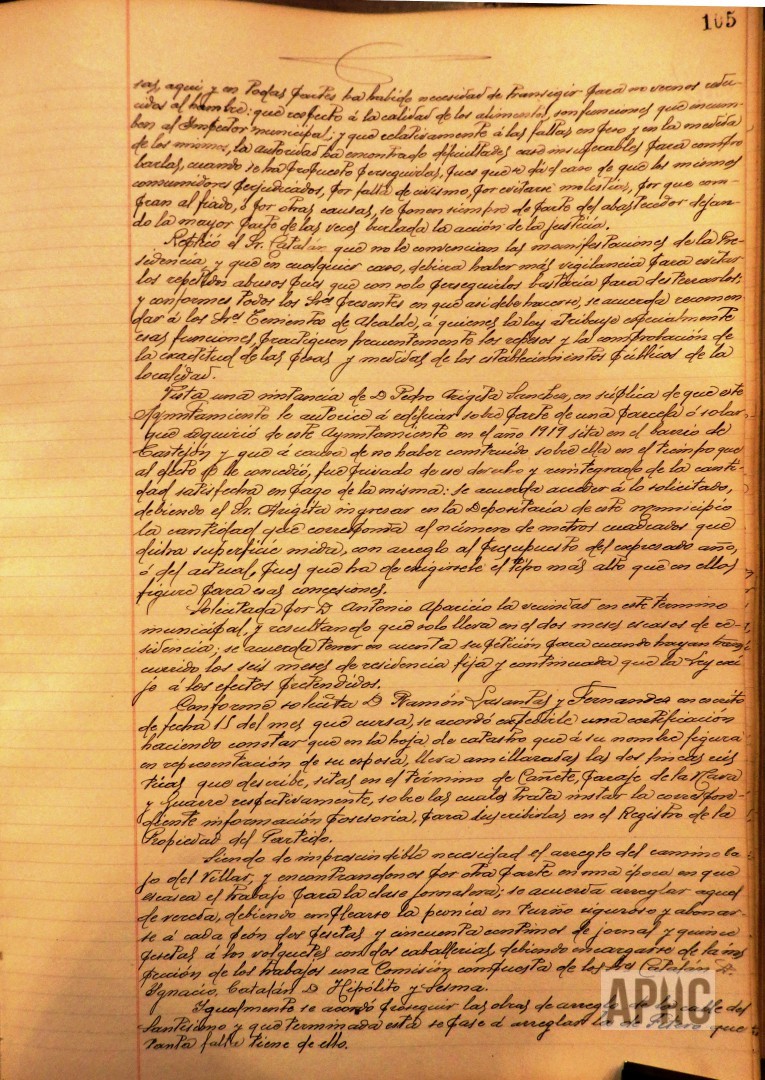 105
sas, aquí, y en todas partes ha habido necesidad de transigir para no vernos redu-
cidos al hambre: que respecto á la calidad de los alimentos, son funciones que incum-
ben al Inspector municipal; y que relativamente á las faltas en peso y en la medida
de los mismos, la autoridad ha encontrado dificultades casi insuperables para compro
barlas, cuando se ha propuesto perseguirlas, pues que se dá el caso de que los mismos
consumidores perjudicados, por falta de civismo, por evitarse molestias, por que com-
pran al fiado, ó por otras causas, se ponen siempre de parte del abastecedor dejan-
do la mayor parte de las veces burlada la acción de la justicia.
Replicó el Sr. Catalán que no le convencian las manifestaciones de la Pre-
sidencia, y que en cualquier caso, debiera haber más vigilancia para evitar
los repetidos abusos pues que con solo perseguirlos bastaria para desterrarlos;
y conformes todos los Sres presentes en que asi debe hacerse, se acuerda recomen
dar á los Sres Tenientes de Alcalde, á quienes la ley atribuye especialmente
esas funciones, practiquen frecuentemente los repesos y la comprobación de
la exactitud de las pesas y medidas de los establecimientos públicos de la
localidad.
Vista una instancia de D Pedro Arigita Sanchez, en súplica de que este
Ayuntamiento le autorice á edificar sobre parte de una parcela ó solar
que adquirió de este Ayuntamiento en el año 1919 sita en el barrio de
Castejón y que á causa de no haber construido sobre ella en el tiempo que
al efecto se le concedió, fué privado de ese derecho y reintegrado de la canti-
dad satisfecha en pago de la misma: se acuerda acceder á lo solicitado,
debiendo el Sr. Arigita ingresar en la Depositaría de este municipio
la cantidad que corresponda al número de metros cuadrados que
dicha superficie mida, con arreglo al presupuesto del expresado año,
ó del actual, pues que ha de exigirsele el tipo más alto que en ellos
figure para esas concesiones.
Solicitada por D Antonio Aparicio la vecindad en este termino
municipal, y resultando que solo lleva en el dos meses escasos de re-
sidencia; se acuerda tener en cuenta su petición para cuando hayan trans
currido los seis meses de residencia fija y continuada que la Ley exi-
je á los efectos pretendidos.
Conforme solicita D. Ramón Lusantas y Fernandez en escrito
de fecha 15 del mes que cursa, se acordó expedirle una certificación
haciendo constar que en la hoja de catastro que á su nombre figura
en representación de su esposa, lleva amillaradas las dos fincas rús
ticas que describe, sitas en el término de Cañete, paraje de la Nava
y Guarre respectivamente, sobre las cuales trata instar la correspon-
diente información posesoria, para inscribirlas en el Registro de la
Propiedad del Partido.
Siendo de imprescindible necesidad el arreglo del camino ba-
jo del Villar; y encontrandonos por otra parte en una época en que
escasea el trabajo para la clase jornalera; se acuerda arreglar aquel
de vereda, debiendo emplearse la peonía en turno riguroso y abonar-
se á cada peón dos pesetas y cincuenta centimos de jornal y quince
pesetas á los volquetes con dos caballerias, debiendo encargarse de la ins
pección de los trabajos una Comisión compuesta de los Sres Catalán D.
Ignacio, Catalán D Hipólito y Sesma.
Igualmente se acordó proseguir las obras de arreglo de la calle del
Santísimo y que terminada esta se pase á arreglar la de que
tanta falta tiene de ello.
APHC